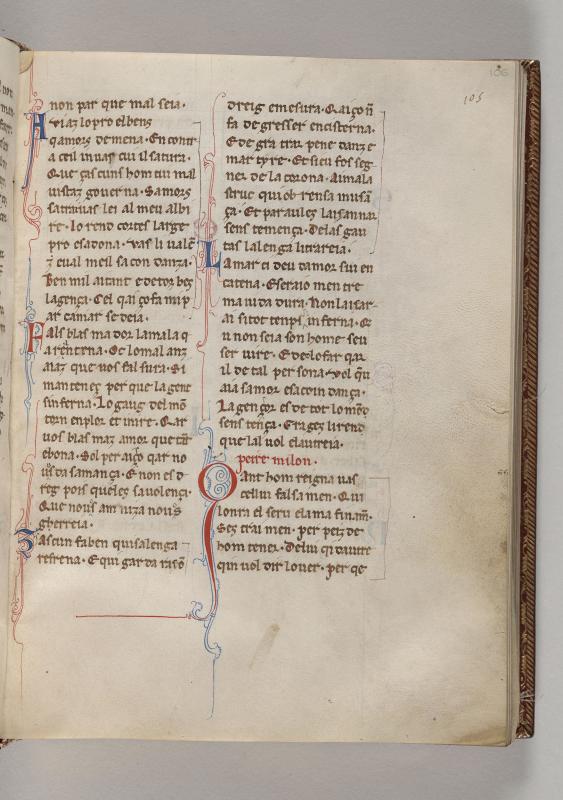 106
105
non par que mal seia.
Aviaz lo pro el bens
q̄amors demena. En contr
a ceil in uas cui il satura.
Que ças cuns hom cui mal
uistaz gouerna. Samors
lei al meu albi
re. lo rend cortes large
pro es adona. uas li ualē
z cual meil sa con danza.
Ben mil aitant
la gença. Cel qai çosa mi p
ar camar se deia.
Fals blas mador la mala q̄
Oc lo mal anz
aiaz que uos fal sura. Si
mantenez per que la gent
sinferna. Lo gaug del mō
torn en plor et in ire. Qar
uos blas maz amor que tāt
es bona. Sol per aiço qar no
samança. E non es d
reg pois quel es sa uolença.
Que nous am ni za nous
gherreia.
Zascun fa ben qui sa lenga
refrena. E qui garda raisō
dreig e mesura. Q aiço nō
fa degresser en cisterna.
E de gra trar pene danz e
martyre. Et sieu fos seg
ner de la corona. A mala
struc qui ob rensa
ça. Et paraulez laisannar
sens temença. Delas gau
tas la lenga li trareia.
Lamar ci deu damor sui en
catena. E serai o men tre
ma uida dura. Non laisar
ai si tot temps inferna. Q
u non seia son home seu
ser uire. E de lo far qar
il de tal per sona. Vol qu
aia samor esa coin dança.
La gençor es de tot lo mōd
sens tēça. Era gez li rend
que lal uol el autreia.
peire milon.
Qant hom reigna uas
celui falsa men. Qui
lonra el seru el ama finam̄.
Gez trai men. per petz de
hom tener. Delui qi dautre
qui uol dir louer. per qe